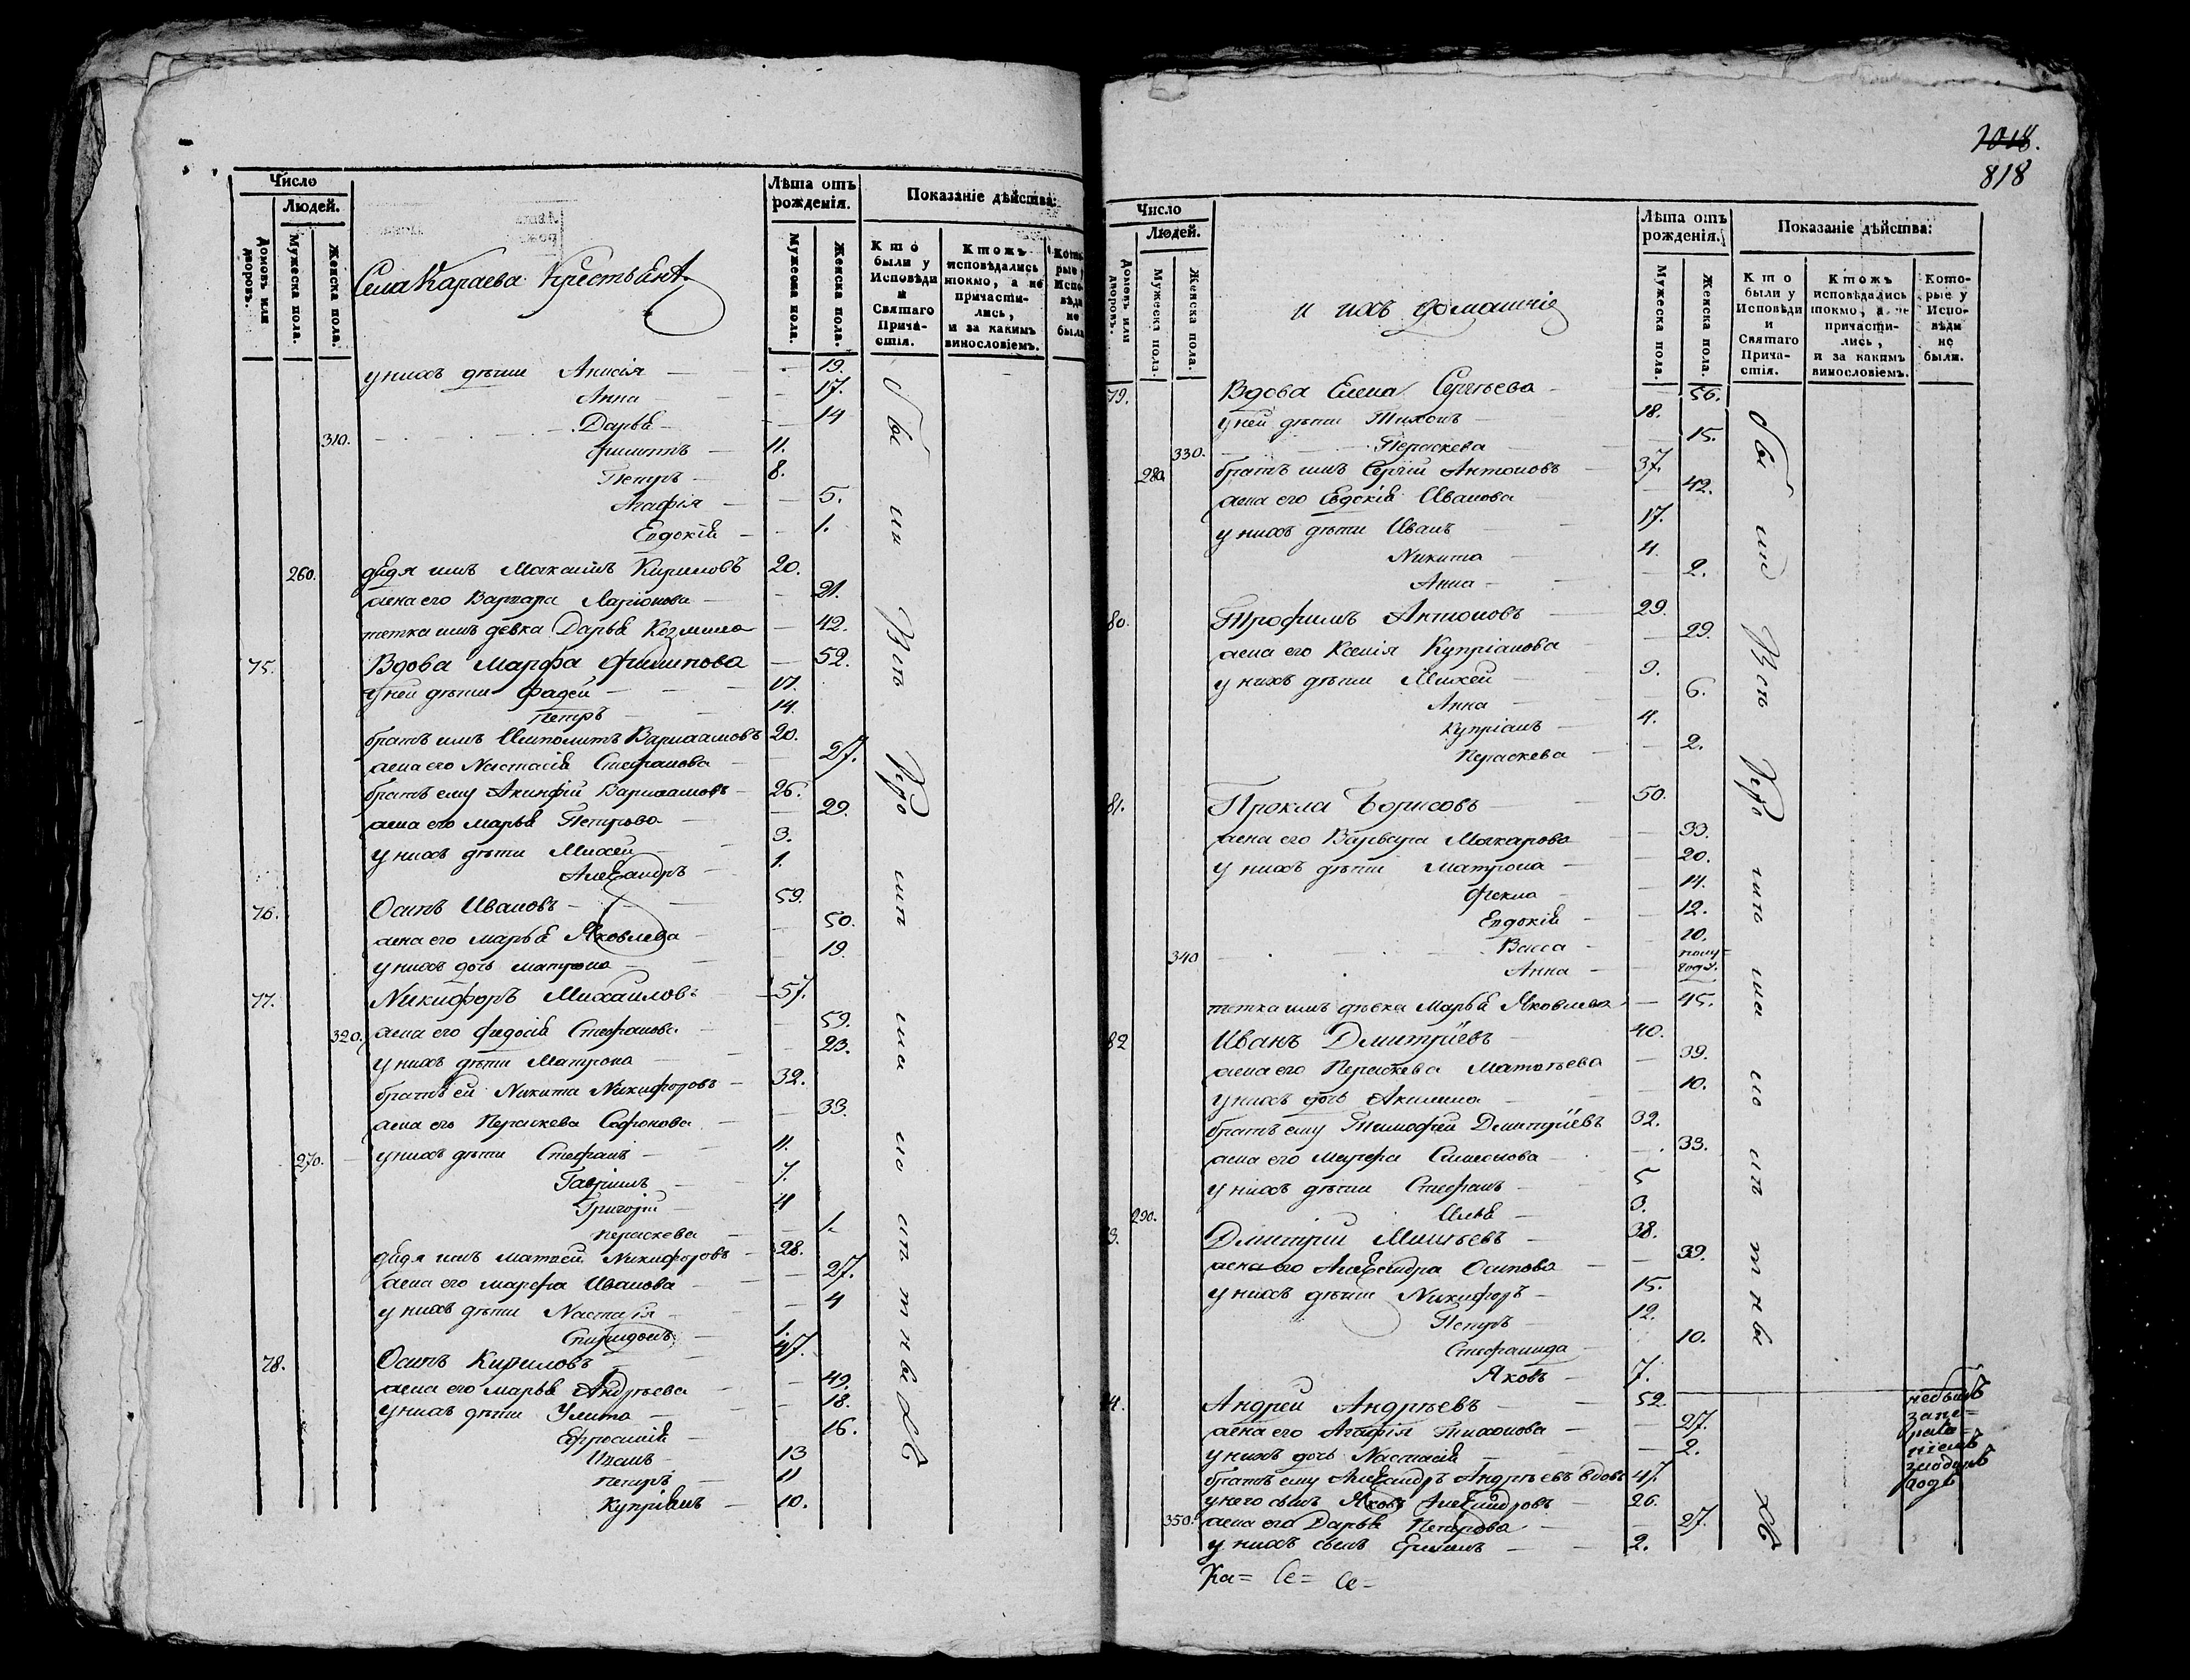 Число
Людей.
Домовъ или дворовъ.
Мужеска пола.
Женска пола.
Села Караева Крестьяне
Лѣта отъ рожденія.
Мужеска пола.
Женска пола.
Показаніе дѣйства:
Кто были у Исповѣди и Святаго Прича-стія.
Ктожъ исповѣдались токмо, а не причасти-лись, и за какимъ винословіемъ.
Кото-рые у Испо-вѣди не были
у нихъ дѣти Анисія 19.
Анна 17.
Дарья 14
310. Филиппъ 11.
Петръ 8.
Агафія 5.
Евдокія 1.
260. дядя имъ Максимъ Кириловъ 20.
жена его Варвара Ларіонова 21.
тетка имъ девка Дарья Козмина 42.
75. Вдова Марфа Филипова 52.
у ней дѣти Фадей 17.
Петръ 14.
братъ имъ Ипполитъ Варлаамовъ 20.
жена его Настасія Стефанова 27.
братъ ему Акинфій Варлаамовъ 26.
жена его Марья Петрова 29.
у нихъ дѣти Михей 3.
Александръ 1.
76. Осипъ Ивановъ 59.
жена его Марья Яковлева 50.
у нихъ дочь Матрона 19.
77. Никифоръ Михаиловъ 57.
320. жена его Федосія Стефанова 59.
у нихъ дѣти Матрона 23.
братъ ей Никита Никифоровъ 32.
жена его Пераскева Софонова 33.
270. у нихъ дѣти Стефанъ 11.
Гавріилъ 7.
Григорій 4
Пераскева 1.
дядя имъ Матвей Никифоровъ 28.
жена его Марфа Иванова 27.
у нихъ дѣти Настасія 4
Спиридонъ 1.
78. Осипъ Кириловъ 47.
жена его Марья Андрѣева 49.
у нихъ дѣти Улита 18.
Ефросинія 16.
Иванъ 13
Петръ 11
Купріянъ 10.
1018.
818
Число
Людей.
Домовъ или дворовъ.
Мужеска пола.
Женска пола.
и ихъ домашнія
Лѣта отъ рожденія.
Мужеска пола.
Женска пола.
Показаніе дѣйства:
Кто были у Исповѣди и Святаго Прича-стія.
Ктожъ исповѣдались токмо, а не причасти-лись, и за какимъ винословіемъ.
Кото-рые у Испо-вѣди не были.
79. Вдова Елена Сергѣева 56.
у ней дѣти Тихонъ 18.
330. Пераскева 15.
280. братъ имъ Сергій Антоновъ 37.
жена его Евдокія Иванова 42.
у нихъ дѣти Иванъ 17.
Никита 4.
Анна 2.
80. Трофимъ Антоновъ 29.
жена его Ксенія Купріанова 29.
у нихъ дѣти Михей 9.
Анна 6.
Купріанъ 4.
Пераскева 2.
81. Прокла Борисовъ 50.
жена его Варвара Макарова 33.
у нихъ дѣти Матрона 20.
Фекла 14.
Евдокія 12.
340 Васса 10.
Анна полу=года.
тетка имъ дѣвка Марья Яковлева 45.
82 Иванъ Дмитріевъ 40.
жена его Пераскева Матвѣева 39.
у нихъ дочь Акилина 10.
братъ ему Тимофей Дмитріевъ 32.
жена его Марфа Симонова 33.
у нихъ дѣти Стефанъ 5
290. Илья 3.
3. Дмитрій Минѣевъ 38.
жена его Александра Осипова 39.
у нихъ дѣти Никифоръ 15.
Петръ 12.
Стефанида 10.
Яковъ 7.
4. Андрей Андрѣевъ 52.
жена его Агафія Тихонова 27.
у нихъ дочь Настасія 2.
братъ ему Александръ Андрѣевъ вдовъ 47.
у него сынъ Яковъ Александровъ 26.
350. жена его Дарья Петрова 27.
у нихъ сынъ 2.
Ка= Се= Се=